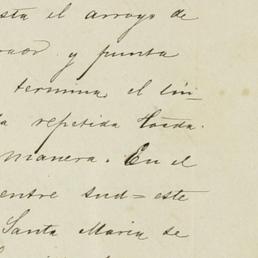 sta el arroyo de
y punta
termina el lin-
repetida Hosda.
manera. En el
entre sud=este
Santa Maria de